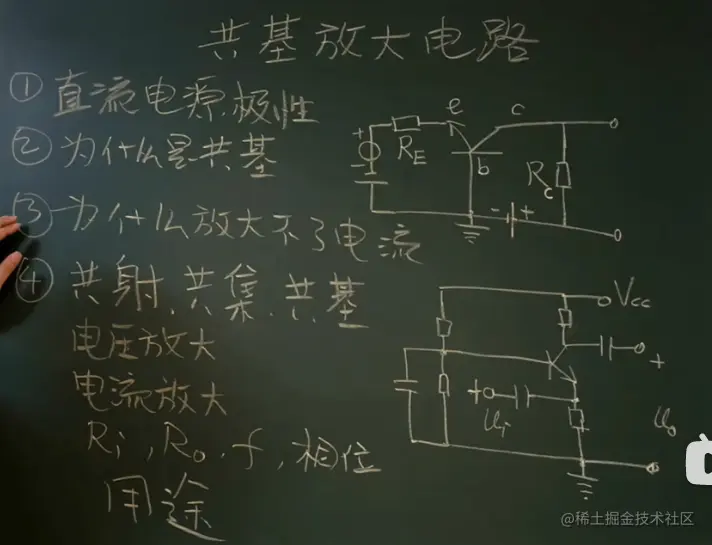 共基放大电路
① 直流电源极性
② 为什么是共基
③ 为什么放大不了电流
④ 共射、共集、共基
电压放大
电流放大
Ri, Ro, f, 相位
用途
e c
+ RE b Rc
- +
Vcc
+
+ Ui Uo
@稀土掘金技术社区